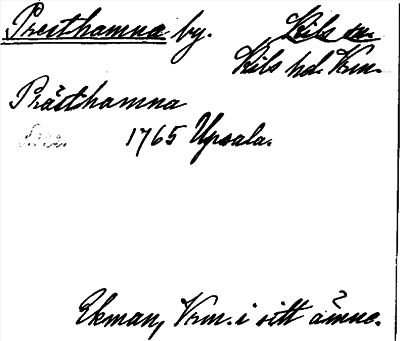 Presthamna by. Kils sn.
Kils hd. Vrm.
Prästhamna
1765 Upsala.
Ekman, Vrm. i sitt ämne.